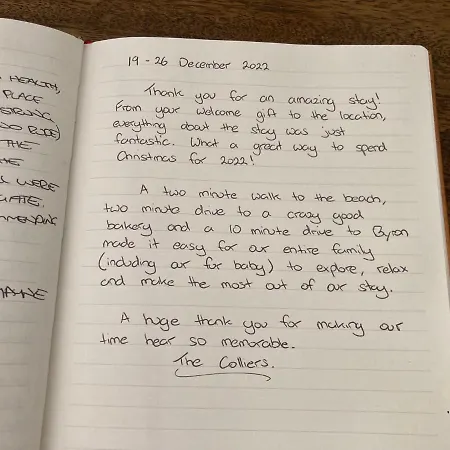 HEALTH,
PLACE
STRONG,
THE
WERE
19 - 26 December 2022
Thank you for an amazing stay!
From your welcome gift to the location,
everything about the stay was just
fantastic. What a great way to spend
Christmas for 2022!
A two minute walk to the beach,
two minute drive to a crazy good
bakery and a 10 minute drive to Byron
made it easy for our entire family
(including our fur baby) to explore, relax
and make the most out of our stay.
A huge thank you for making our
time hear so memorable.
The Colliers.